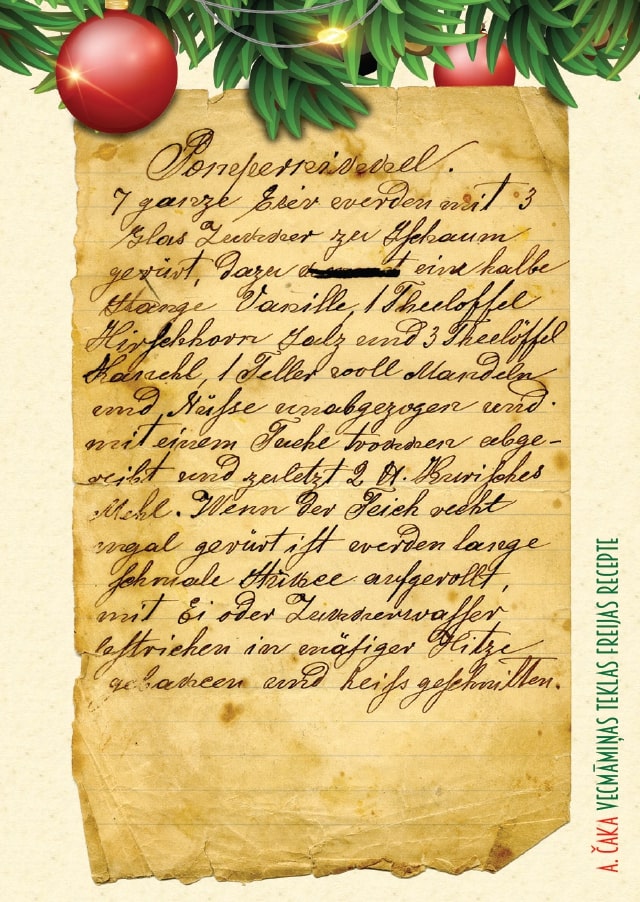 Pompernikkel.
7 ganze Eier werden mit 3
Glas Zukker zu Schaum
gerürt, dazu eine halbe
Stange Vanille, 1 Theeloffel
Hirschhorn Salz und 3 Theelöffel
Kanehl, 1 Teller voll Mandeln
und Nüsse unabgezogen und
mit einem Tuche trokken abge-
reibt und zuletzt 2 ℔. Kurisches
Mehl. Wenn der Teich recht
egal gerürt ist werden lange
schmale Stükke aufgerollt,
mit Ei oder Zukkerwasser
bestrichen in mäsiger Hitze
gebakken und heiss geschnitten.
A. ČAKA VECMĀMIŅAS TEKLAS FREIJAS RECEPTE